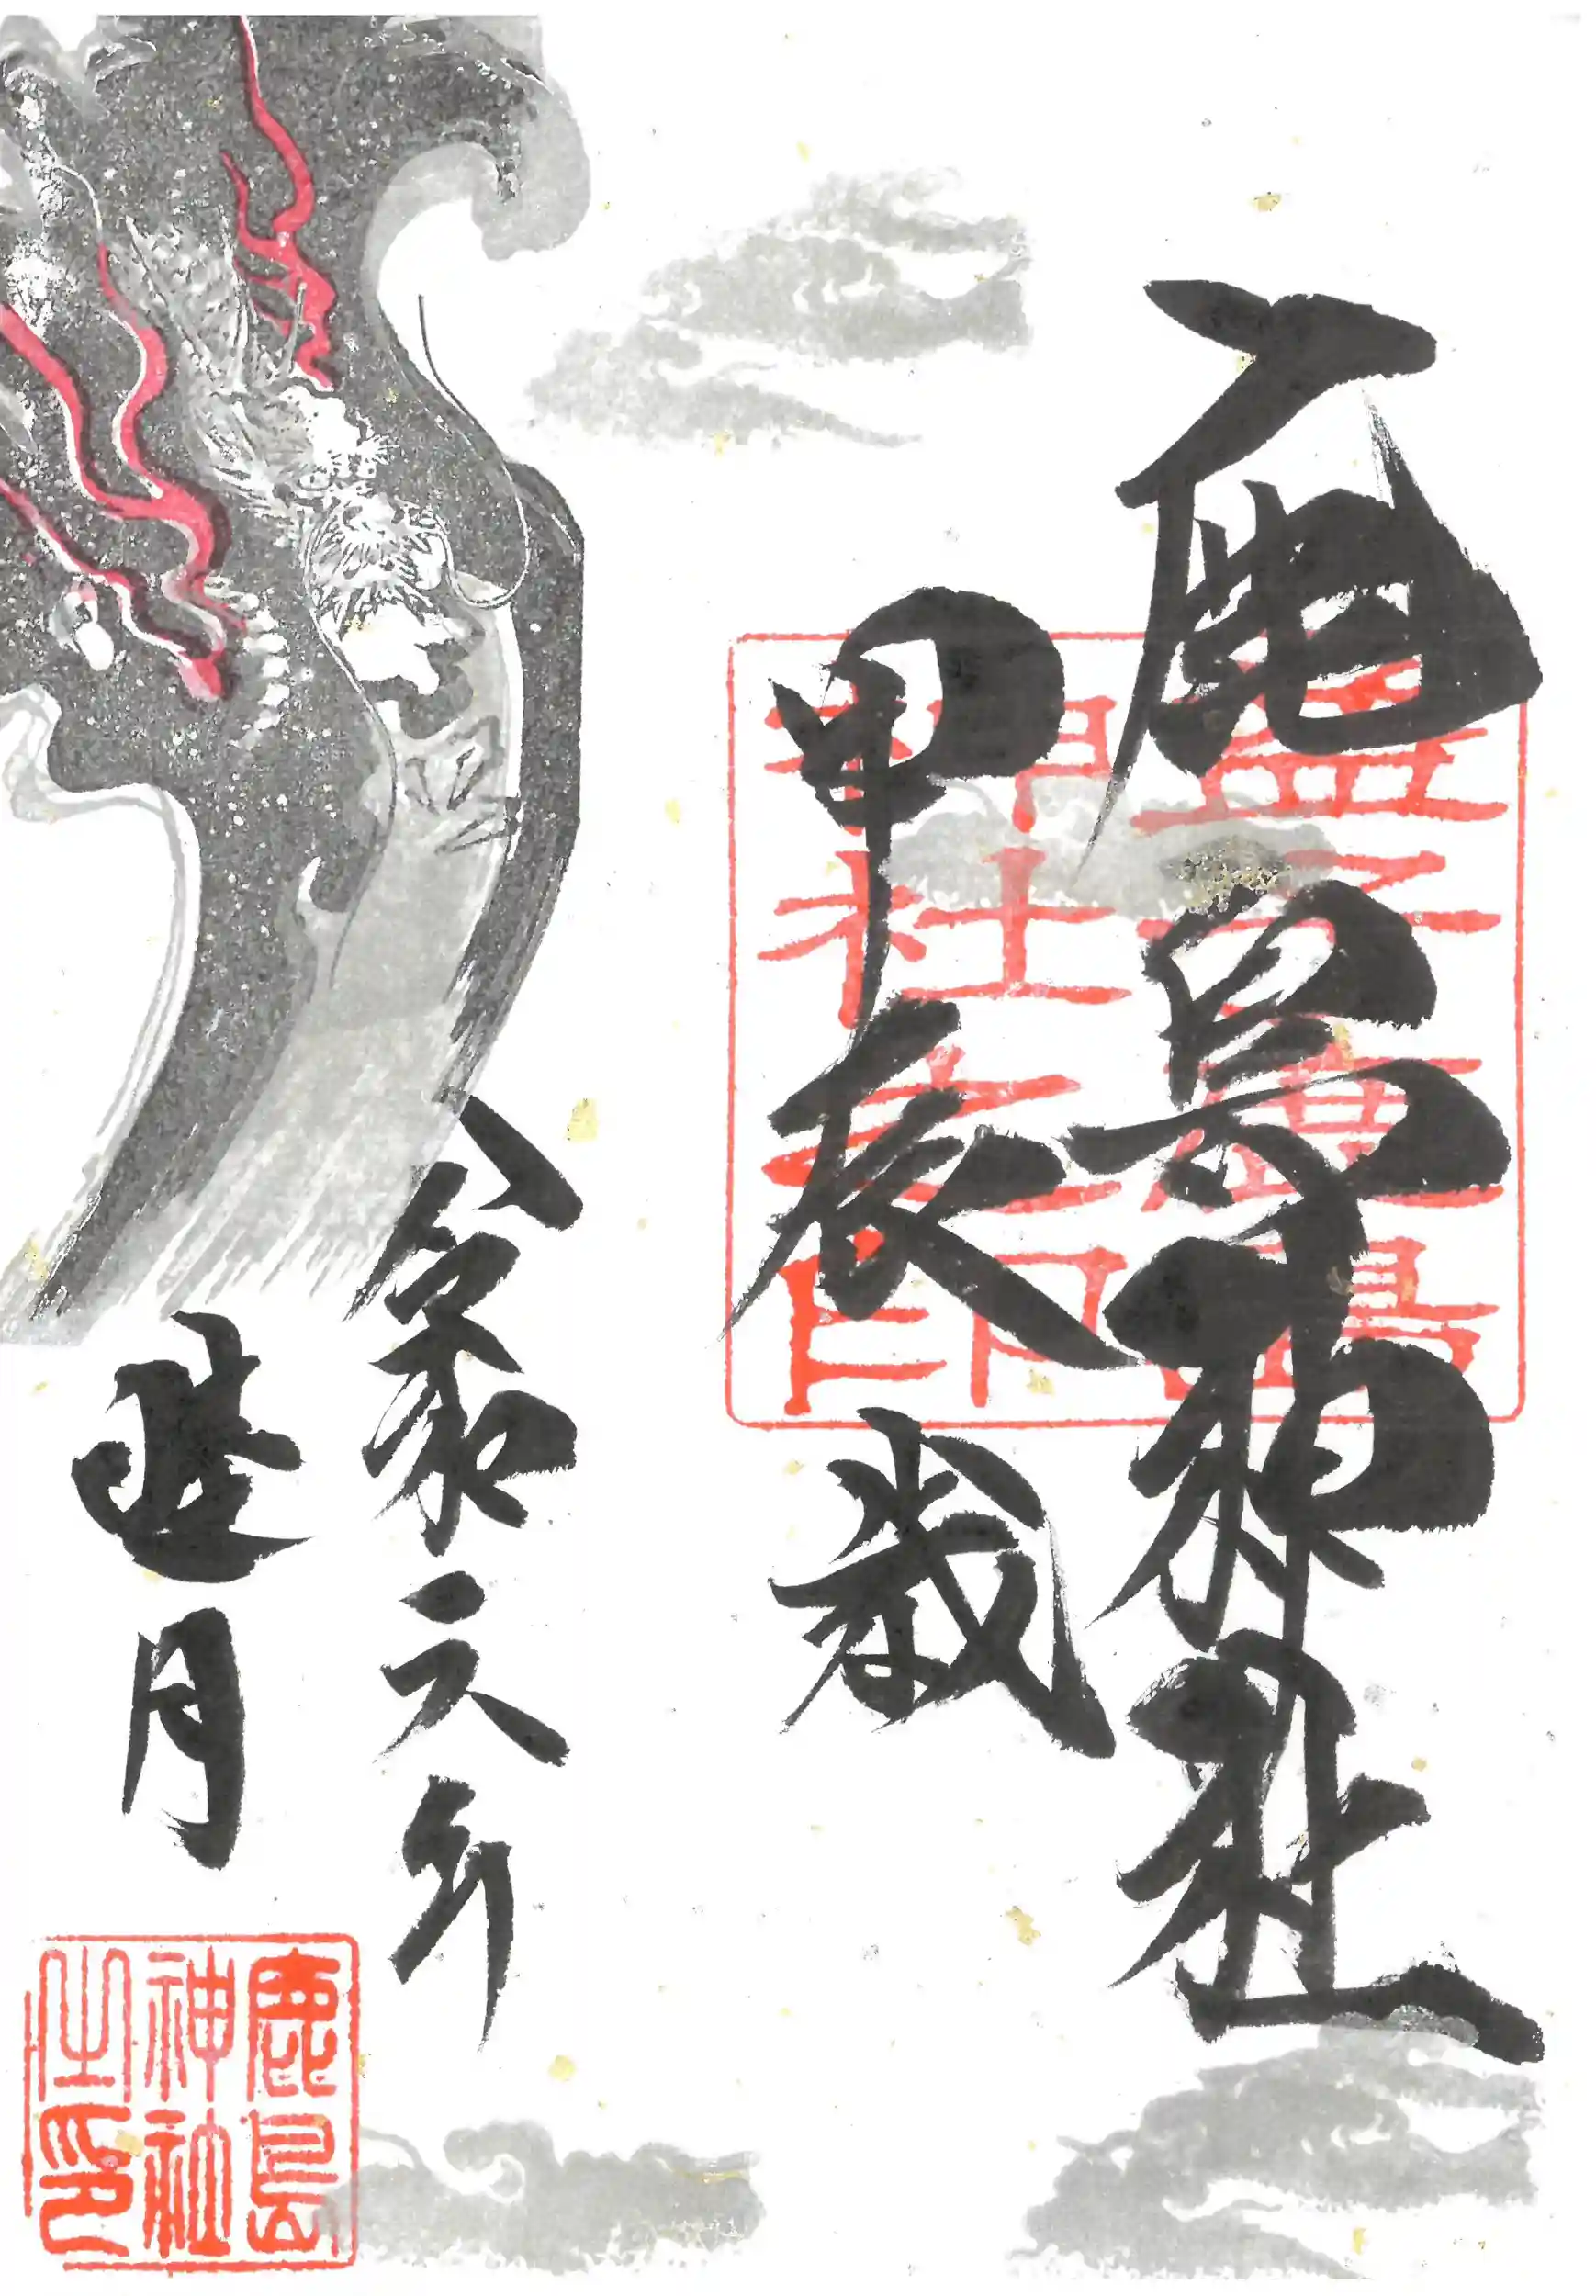 鹿島神社
益子鹿島
神社之印
甲辰歳
令和六年
月
鹿島
神社
之印